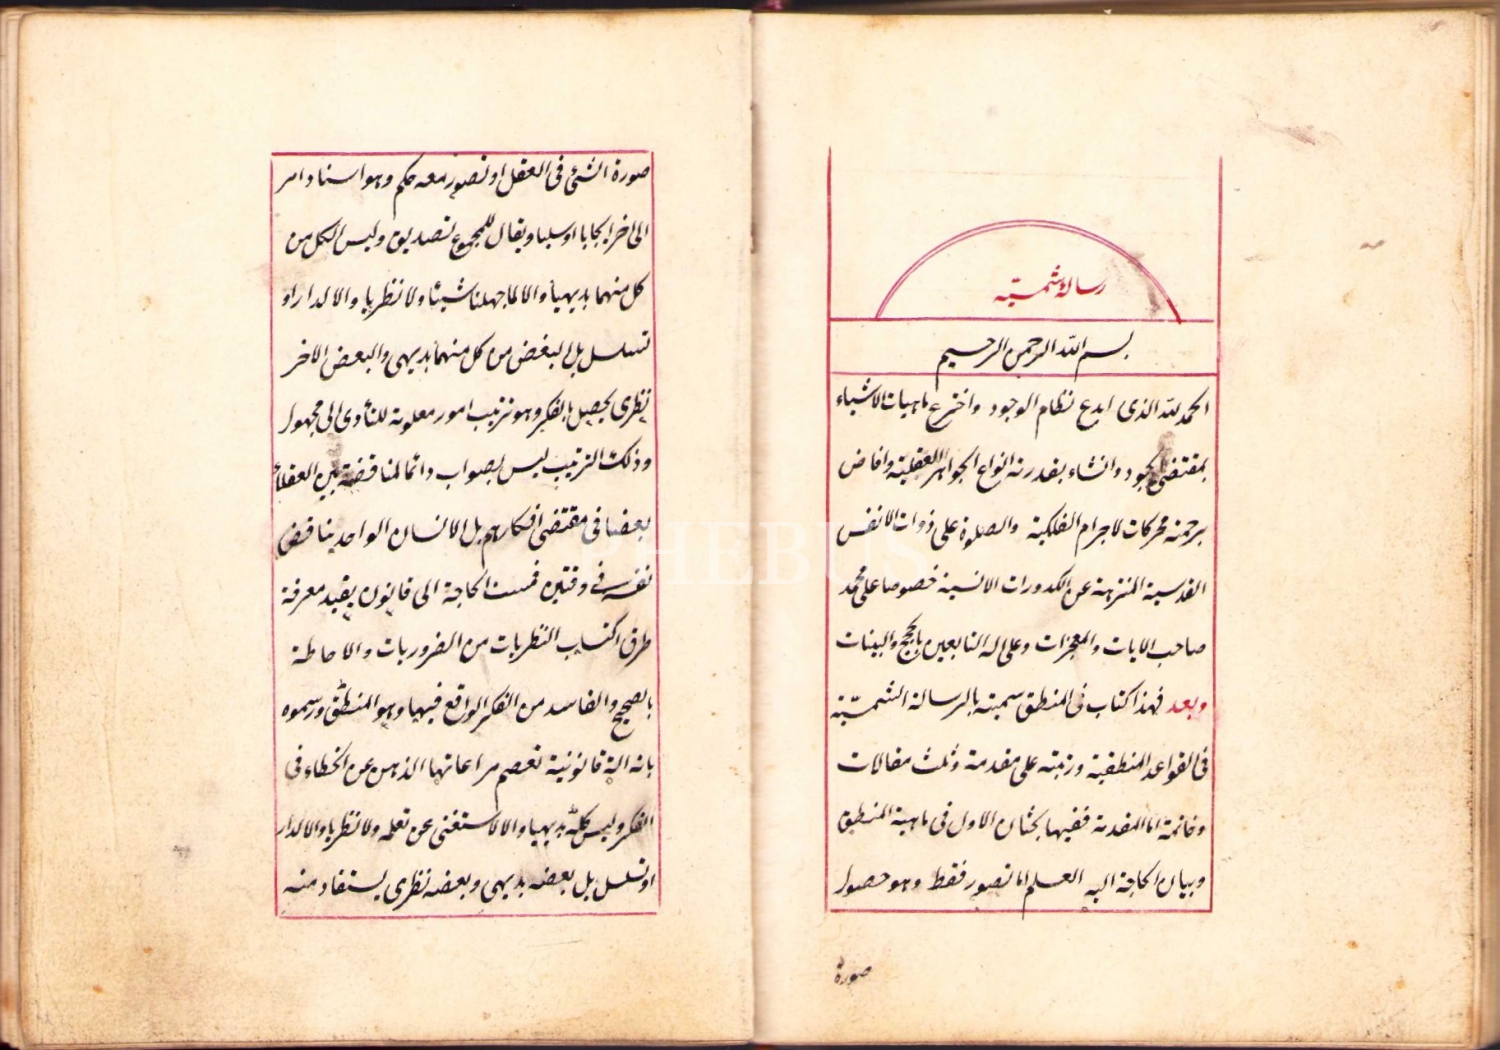 رسالة شمسيّه
بسم الله الرحمن الرحيم
الحمد لله الذى ابدع نظام الوجود واخترع ماهيات الاشياء
بمقتضى الجود وانشاء بقدرته انواع الجواهر العقلية وافاض
برحمته محركات الاجرام الفلكية والصلوة على ذوات الانفس
القدسية المنزهة عن الكدورات الانسية خصوصا على محمد
صاحب الايات والمعجزات وعلى اله التابعين بالحجج والبينات
وبعد فهذا كتاب فى المنطق سميته بالرسالة الشمسيّة
فى القواعد المنطقية ورتبته على مقدمة وثلث مقالات
وخاتمة اما المقدمة ففيها بحثان الاول فى ماهية المنطق
وبيان الحاجة اليه العلم اما تصور فقط وهو حصول
صورة
صورة الشئ فى العقل او تصور معه حكم وهو اسناد امر
الى اخر ايجابا او سلبا ويقال للمجموع تصديق وليس الكل من
كل منهما بديهيا والا لما جهلنا شيئا ولا نظريا والا لدار او
تسلسل بل البعض من كل منهما بديهى والبعض الاخر
نظرى يحصل بالفكر وهو ترتيب امور معلومة للتأدى الى مجهول
وذلك الترتيب ليس بصواب دائما لمناقضة بين العقلاء
بعضا فى مقتضى افكارهم بل الانسان الواحد يناقض
نفسه فى وقتين فمست الحاجة الى قانون يفيد معرفة
طرق اكتساب النظريات من الضروريات والاحاطة
بالصحيح والفاسد من الفكر الواقع فيها وهو المنطق ورسموه
بانه الة قانونية تعصم مراعاتها الذهن عن الخطاء فى
الفكر وليس كلّه بديهيا والا لاستغنى عن تعلمه ولا نظريا والا لدار
او تسلسل بل بعضه بديهى وبعضه نظرى يستفاد منه
PHEBUS